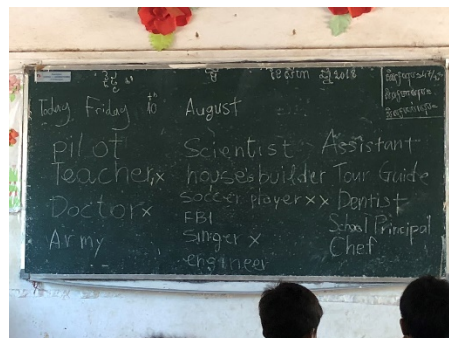 ថ្ងៃ សុក្រ ទី ខែ សីហា ឆ្នាំ 2018
Today Friday 10th August
pilot
Teacher x
Doctor x
Army
Scientist
house's builder
soccer player x x
FBI
Singer x
engineer
Assistant
Tour Guide
Dentist
School Principal
Chef